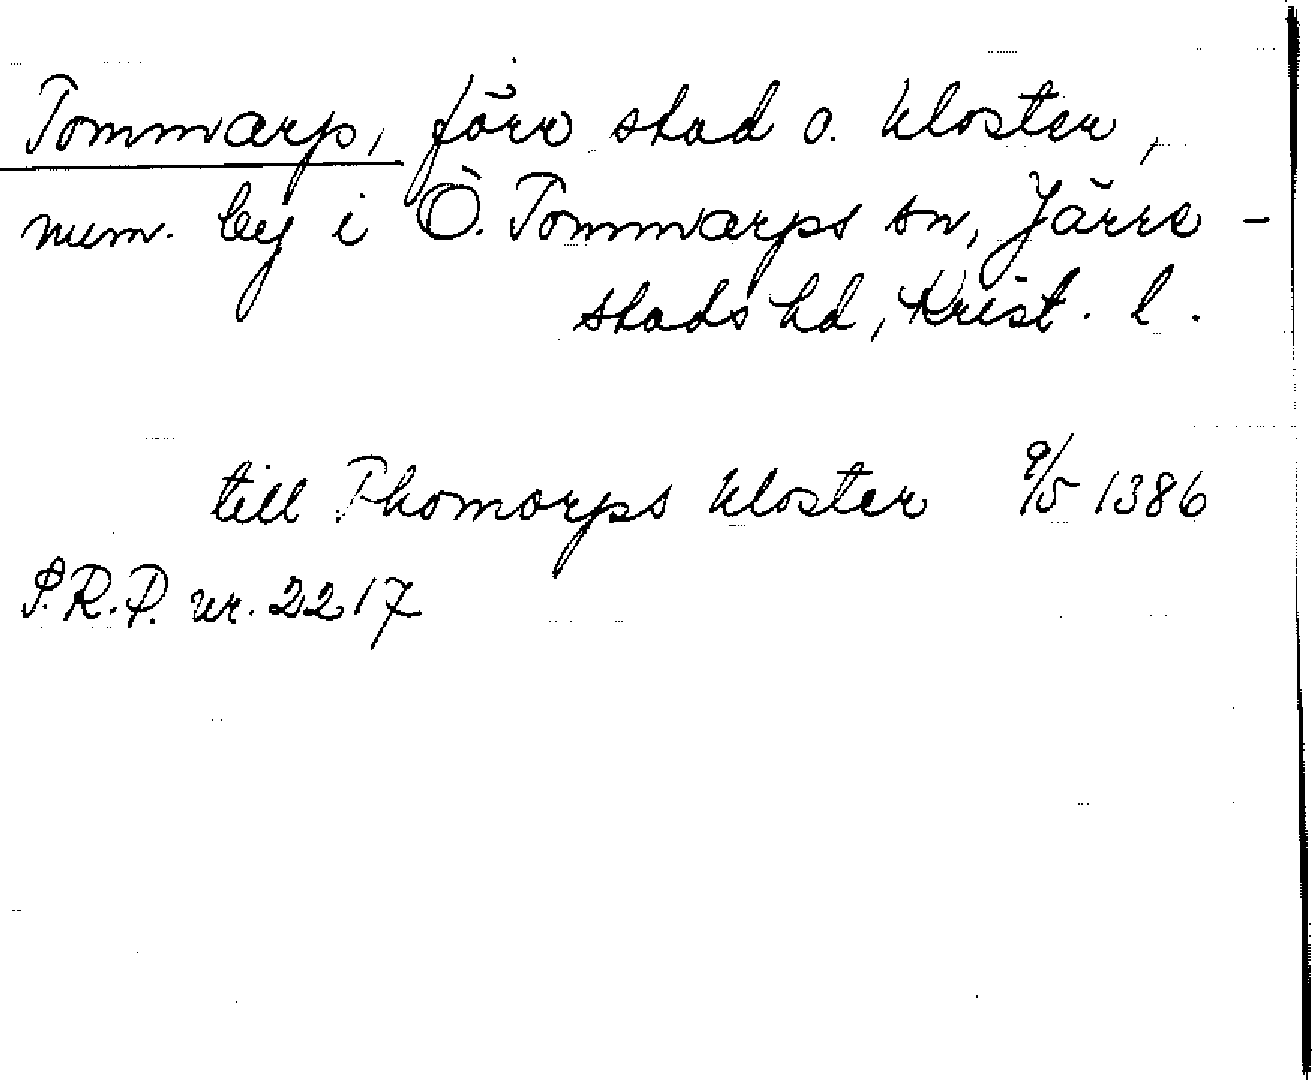 Tommarp, förr stad o. kloster,
num. by i Ö. Tommarps sn, Järre-
stads hd, Krist. l.
till Thomarps kloster 9/5 1386
P.R.P. nr. 2217